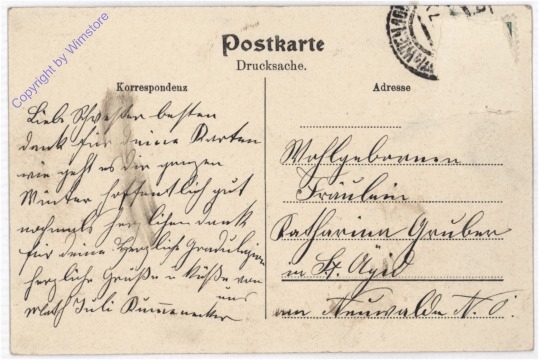 Copyright by Wimstore
Postkarte
Drucksache.
Korrespondenz
Adresse
Liebe Schwester besten
dank für deine Karten
wie geht es dir ganzen
Winter hoffentlich gut
nochmals herzlichen dank
für deine herzliche Gradulazion
herzliche Grüße u Küße von
uns
Juli
Wohlgebornen
Fräulein
Katharina Gruber
in St. Agid
am Neuwalde N. Ö.